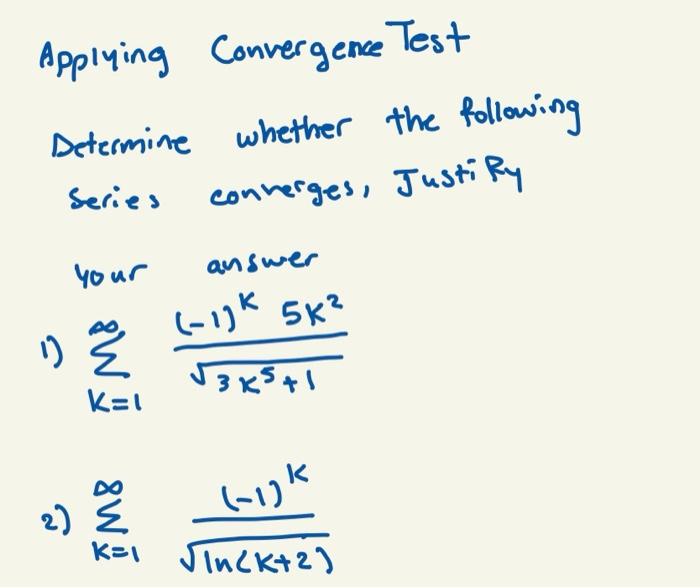 Applying Convergence Test
Determine whether the following
Series converges, Justify
your answer
1) ∞ Σ K=1 (-1)^K 5K² / √(3K⁵+1)
2) ∞ Σ K=1 (-1)^K / √(ln(K+2))